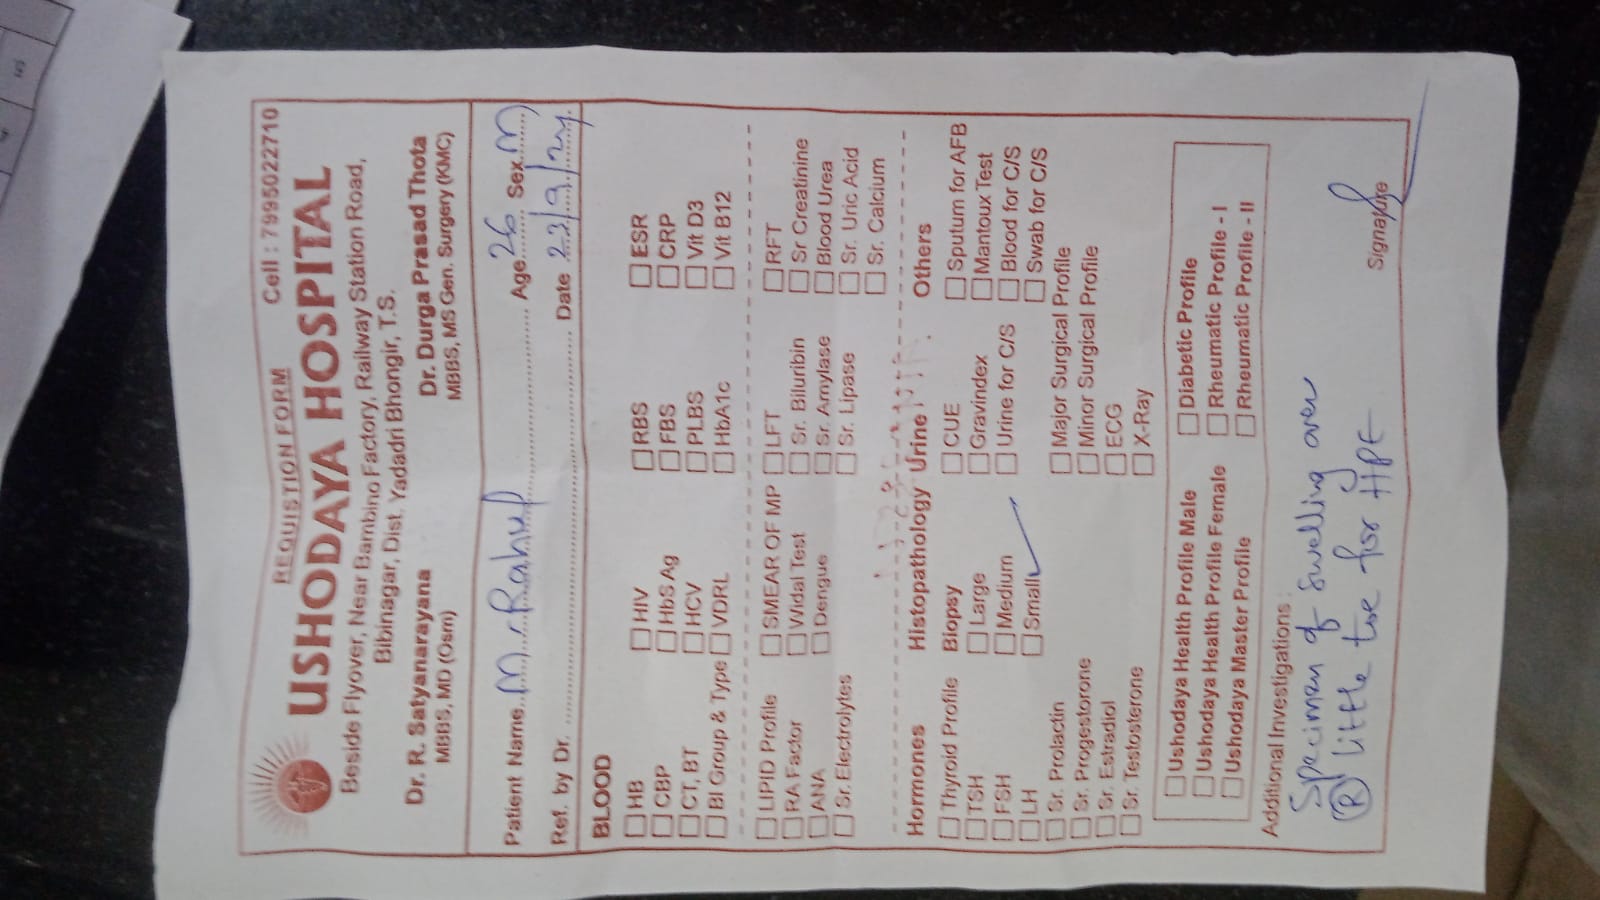 REQUISTION FORM Cell : 7995022710
USHODAYA HOSPITAL
Beside Flyover, Near Bambino Factory, Railway Station Road,
Bibinagar, Dist. Yadadri Bhongir, T.S.
Dr. R. Satyanarayana Dr. Durga Prasad Thota
MBBS, MD (Osm) MBBS, MS Gen. Surgery (KMC)
Patient Name M. Rahul Age 26 Sex M
Ref. by Dr. Date 22/9/24
BLOOD
HB HIV RBS ESR
CBP HbS Ag FBS CRP
CT, BT HCV PLBS Vit D3
Bl Group & Type VDRL HbA1c Vit B12
LIPID Profile SMEAR OF MP LFT RFT
RA Factor Widal Test Sr. Biluribin Sr Creatinine
ANA Dengue Sr. Amylase Blood Urea
Sr. Electrolytes Sr. Lipase Sr. Uric Acid
Sr. Calcium
Hormones Histopathology Urine Others
Thyroid Profile Biopsy CUE Sputum for AFB
TSH Large Gravindex Mantoux Test
FSH Medium Urine for C/S Blood for C/S
LH Small Swab for C/S
Sr. Prolactin Major Surgical Profile
Sr. Progestorone Minor Surgical Profile
Sr. Estradiol ECG
Sr. Testosterone X-Ray
Ushodaya Health Profile Male Diabetic Profile
Ushodaya Health Profile Female Rheumatic Profile - I
Ushodaya Master Profile Rheumatic Profile - II
Additional Investigations :
Specimen of Swelling over
(R) little toe for HPE
Signature